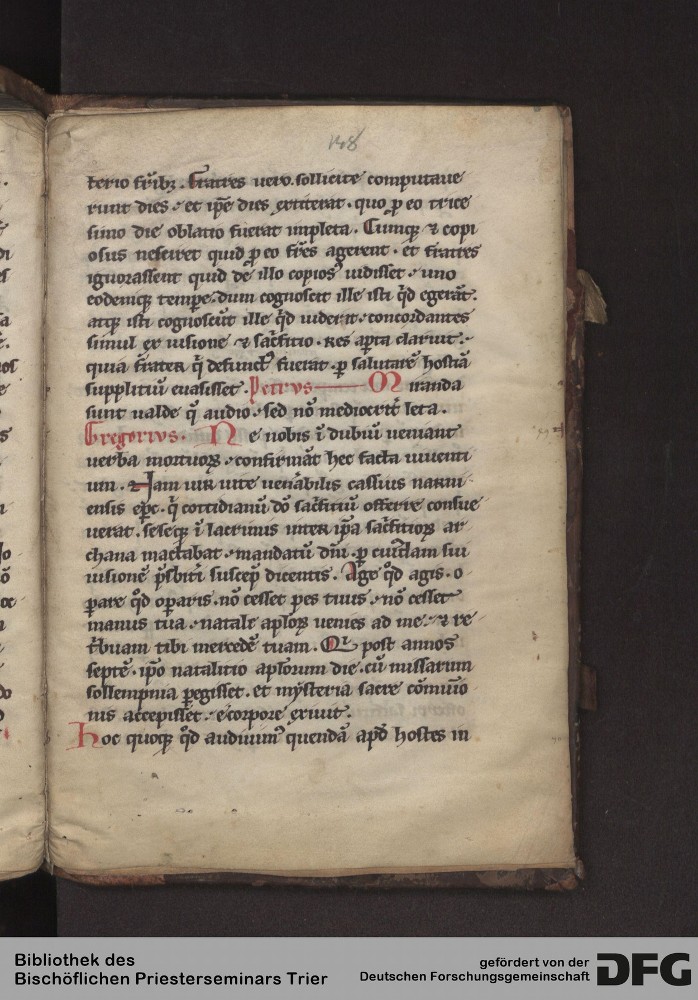 148
terio fr̄ibꝫ . Fratres uero . sollicite computaue
runt dies . et ip̄e dies extiterat . quo ꝓ eo trice
simo die oblatio fuerat impleta . Cumqꝫ ⁊ copi
osus nesciret quid ꝓ eo fr̄es agerent . et fratres
ignorassent quid de illo copiosꝰ uidisset . uno
eodemqꝫ tempore . dum cognoscit ille isti qͦd egerāt .
atqꝫ isti cognoscūt ille qͦd uiderit . concordantes
simul ex uisione ⁊ sac̄fitio . res aꝑta claruit .
quia frater q̄ defunctꝰ fuerat . ꝑ salutarē hostiā
suppliciū euasisset . Petrvs M iranda
sunt ualde q̄ audio . sed nō mediocrit̄ leta .
Gregorivs . N e nobis ī dubiū ueniant
uerba mortuoꝝ . confirmāt hec facta uiuenti
um . Nam uir uite uen̄abilis cassius narni
ensis ep̄c . q̄ cottidianū dō sac̄fitiū offerre consue
uerat . seseqꝫ ī lacrimis inter ip̄a sac̄fitioꝝ ar
chana mactabat . mandatū dn̄i . ꝑ cuiꝰdam sui
uisionē p̄sbit̄i suscep̄ dicentis . Age qͦd agis . o
ꝑare qͦd oꝑaris . nō cesset pes tuus . nō cesset
manus tua . natale ap̄loꝝ uenies ad me . ⁊ re
t̄buam tibi mercedē tuam . Qͥ post annos
septē . ip̄o natalitio ap̄lorum die . cū missarum
sollempnia ꝑegisset . et mysteria sacre cōmuīo
nis accepisset . e corpore exiuit .
Hoc quoqꝫ qͦd audiuimꝰ quendā apd̄ hostes in
Bibliothek des
Bischöflichen Priesterseminars Trier
gefördert von der
Deutschen Forschungsgemeinschaft
DFG